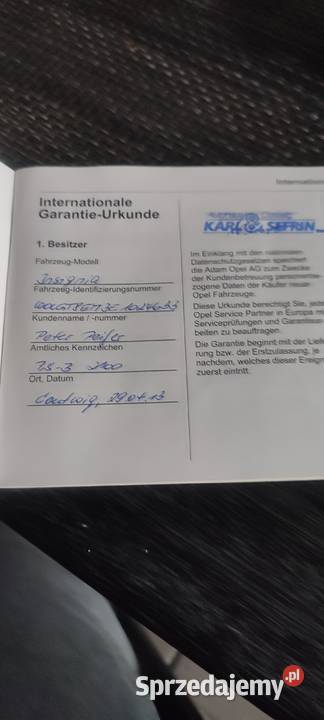 Internationale
Garantie-Urkunde
KARL SEFRIN
1. Besitzer
Fahrzeug-Modell
Insignia
Fahrzeug-Identifizierungsnummer
Kundenname / -nummer
Peter
Amtliches Kennzeichen
Ort, Datum
Im Einklang mit den nationalen
Datenschutzgesetzen speichert
die Adam Opel AG zum Zwecke
der Kundenbetreuung
zogene Daten der Käufer neuer
Opel Fahrzeuge.
Diese Urkunde berechtigt Sie, jeden
Opel Service Partner in Europa mit
Serviceprüfungen und
beiten zu beauftragen.
Die Garantie beginnt mit der
rung bzw. der Erstzulassung, je
nachdem, welches dieser
zuerst eintritt.
Sprzedajemy.pl